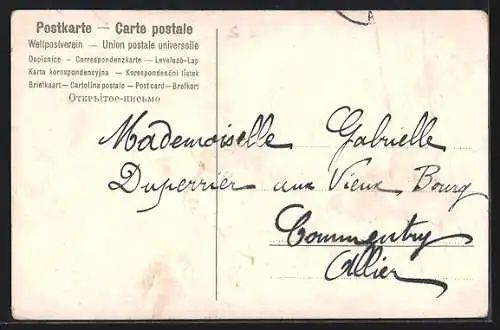 Postkarte — Carte postale
Weltpostverein — Union postale universelle
Dopisnice - Correspondenzkarte — Levelező-Lap
Karta korespondencyjna — Korespondenční lístek
Briefkaart — Cartolina postale — Post card — Brefkort
Открытое-письмо
Mademoiselle Gabrielle
Duperrier aux Vieux Bourg
Commentry
Allier